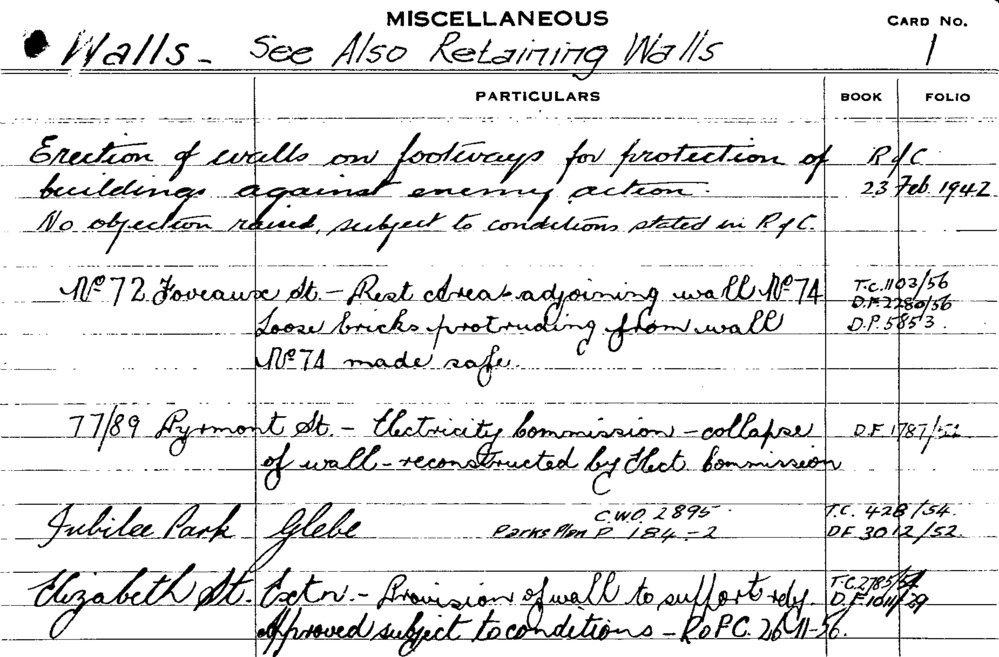 MISCELLANEOUS
CARD NO.
Walls - See Also Retaining Walls
1
PARTICULARS
BOOK
FOLIO
Erection of walls on footways for protection of R of C
buildings against enemy action. 23 Feb. 1942
No objection raised, subject to conditions stated in R of C.
No 72 Foveaux St. - Rest Area adjoining wall No 74 T.C. 1103/56
D.F. 2280/56
Loose bricks protruding from wall D.P. 5853
No 74 made safe.
77/89 Pyrmont St. - Electricity Commission - collapse D.F. 1787/52
of wall - reconstructed by Elect. Commission
C.W.O. 2895 T.C. 428/54.
Jubilee Park Glebe Parks Plan P 184-2 D.F. 3012/52.
Elizabeth St. Extn. - Provision of wall to support rdy. T.C. 2785/54
D.F. 1011/29
Approved subject to conditions - R of P.C. 26-11-56.